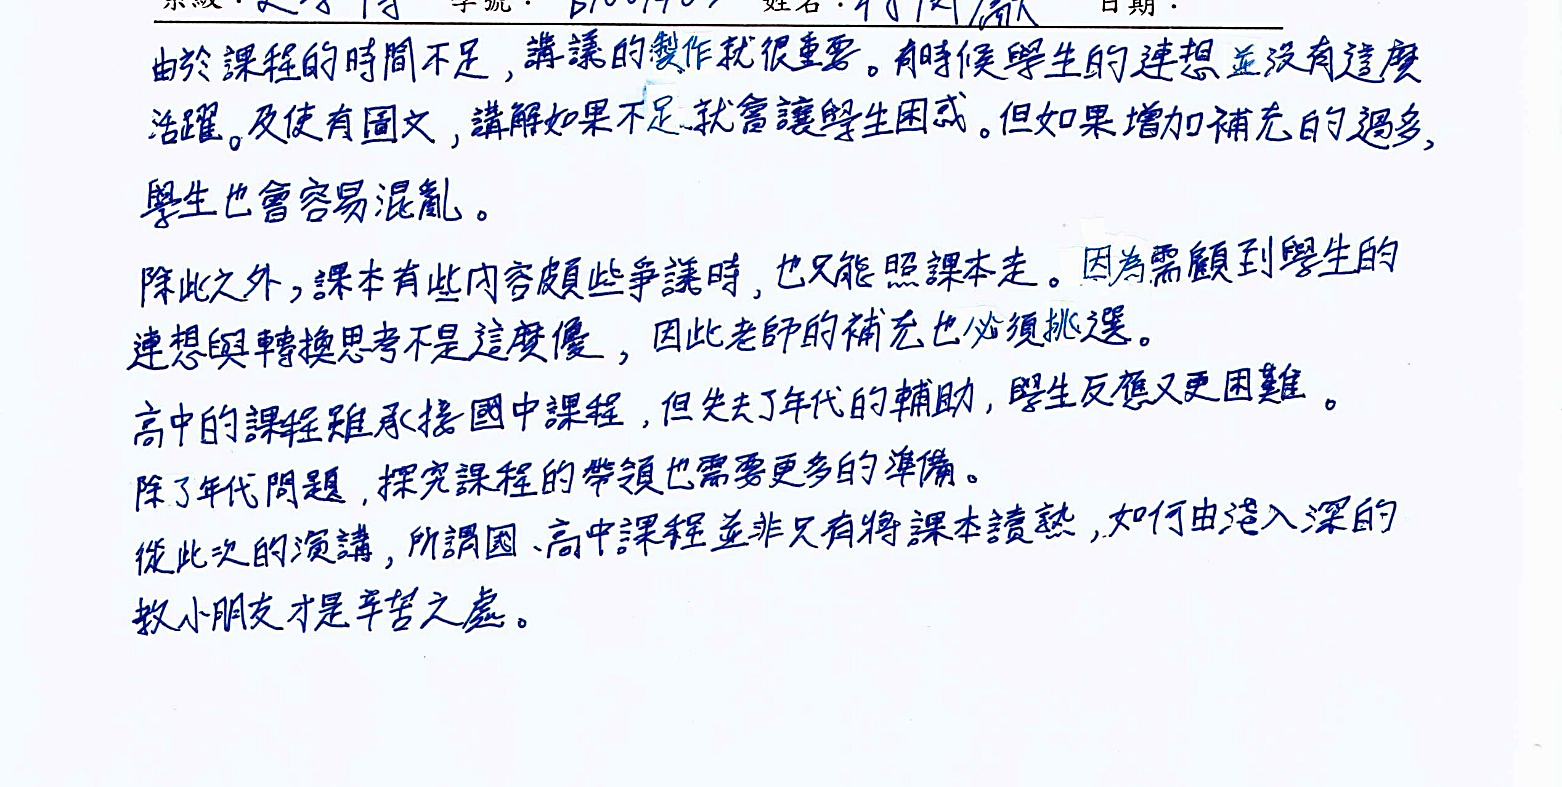 系級： 學號： 姓名： 日期：
由於課程的時間不足，講議的製作就很重要。有時候學生的連想並沒有這麼
活躍。及使有圖文，講解如果不足、就會讓學生困惑。但如果增加補充的過多，
學生也會容易混亂。
除此之外，課本有些內容頗些爭議時，也只能照課本走。因為需顧到學生的
連想與轉換思考不是這麼優，因此老師的補充也必須挑選。
高中的課程雖承接國中課程，但失去了年代的輔助，學生反應又更困難。
除了年代問題，探究課程的帶領也需要更多的準備。
從此次的演講，所謂國、高中課程並非只有將課本讀熟，如何由淺入深的
教小朋友才是辛苦之處。